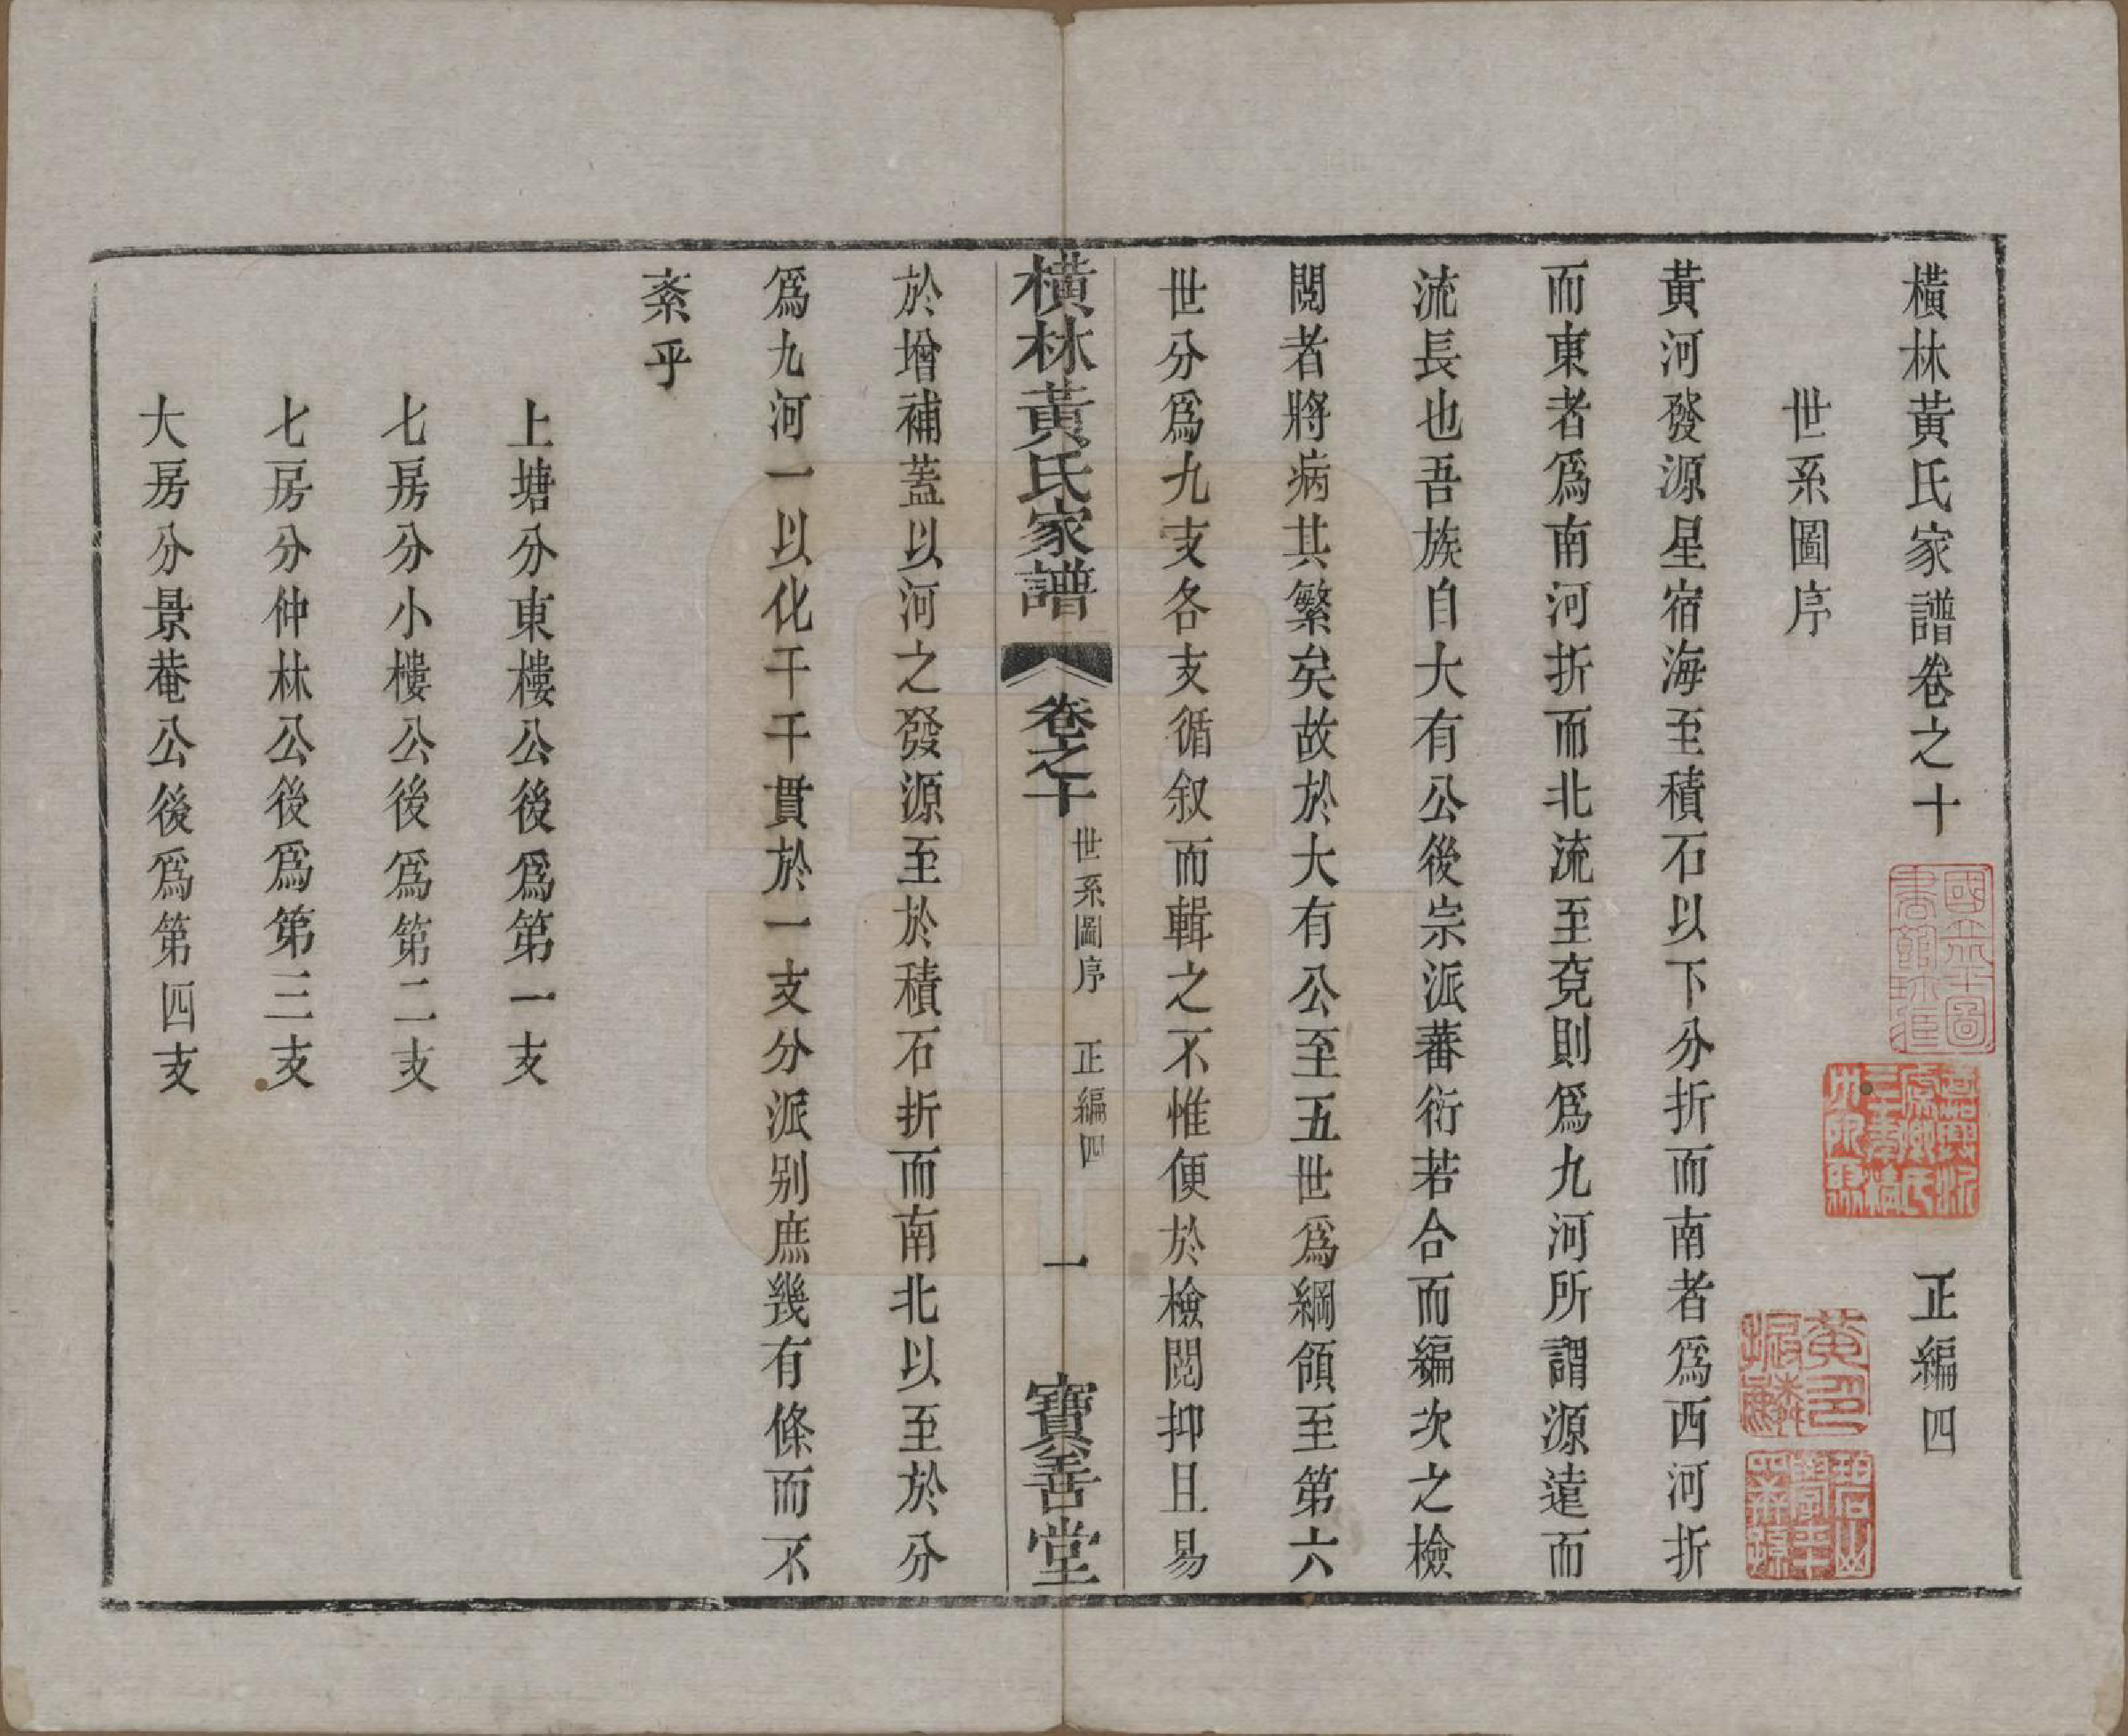 橫林黃氏家譜卷之十 正編四
世系圖序
黃河發源星宿海至積石以下分折而南者爲西河折
而東者爲南河折而北流至兗則爲九河所謂源遠而
流長也吾族自大有公後宗派蕃衍若合而編次之檢
閱者將病其繁矣故於大有公至五世爲綱領至第六
世分爲九支各支循叙而輯之不惟便於檢閱抑且易
橫林黃氏家譜 卷之十 世系圖序 正編四 一 寶善堂
於增補蓋以河之發源至於積石折而南北以至於分
爲九河一以化千千貫於一支分派别庶幾有條而不
紊乎
上塘分東樓公後爲第一支
七房分小樓公後爲第二支
七房分仲林公後爲第三支
大房分景菴公後爲第四支
國立北平圖書館珍藏
黃印振鱗